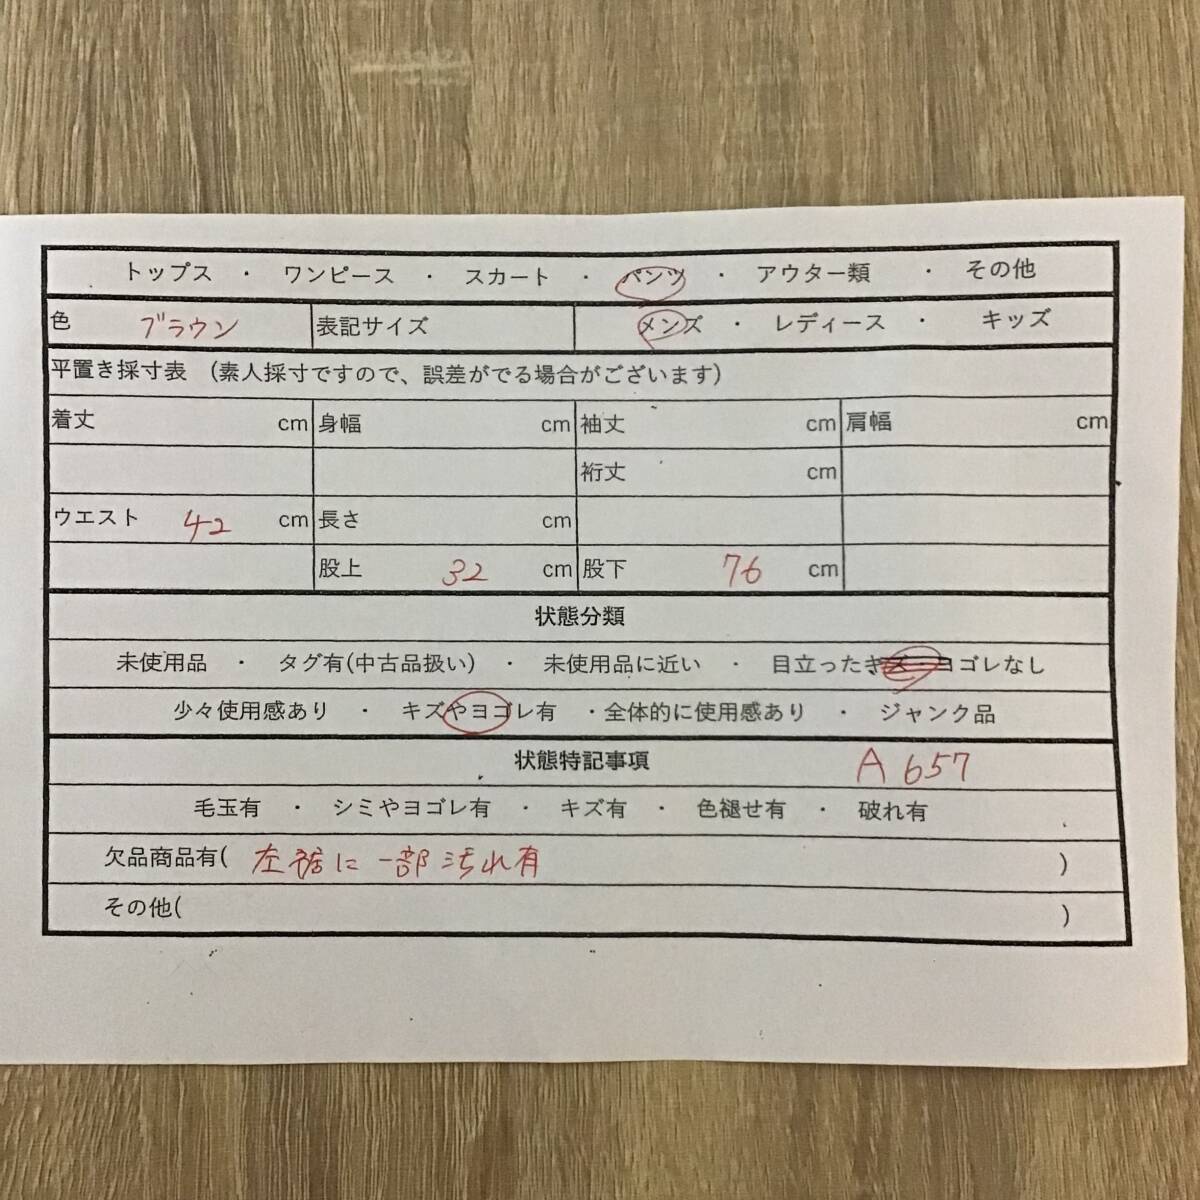 トップス ・ ワンピース ・ スカート ・ パンツ ・ アウター類 ・ その他
色 ブラウン 表記サイズ メンズ ・ レディース ・ キッズ
平置き採寸表 (素人採寸ですので、誤差がでる場合がございます)
着丈 cm 身幅 cm 袖丈 cm 肩幅 cm
裄丈 cm
ウエスト 42 cm 長さ cm
股上 32 cm 股下 76 cm
状態分類
未使用品 ・ タグ有(中古品扱い) ・ 未使用品に近い ・ 目立ったキズ・ヨゴレなし
少々使用感あり ・ キズやヨゴレ有 ・全体的に使用感あり ・ ジャンク品
状態特記事項 A657
毛玉有 ・ シミやヨゴレ有 ・ キズ有 ・ 色褪せ有 ・ 破れ有
欠品商品有( 左裾に一部汚れ有 )
その他( )